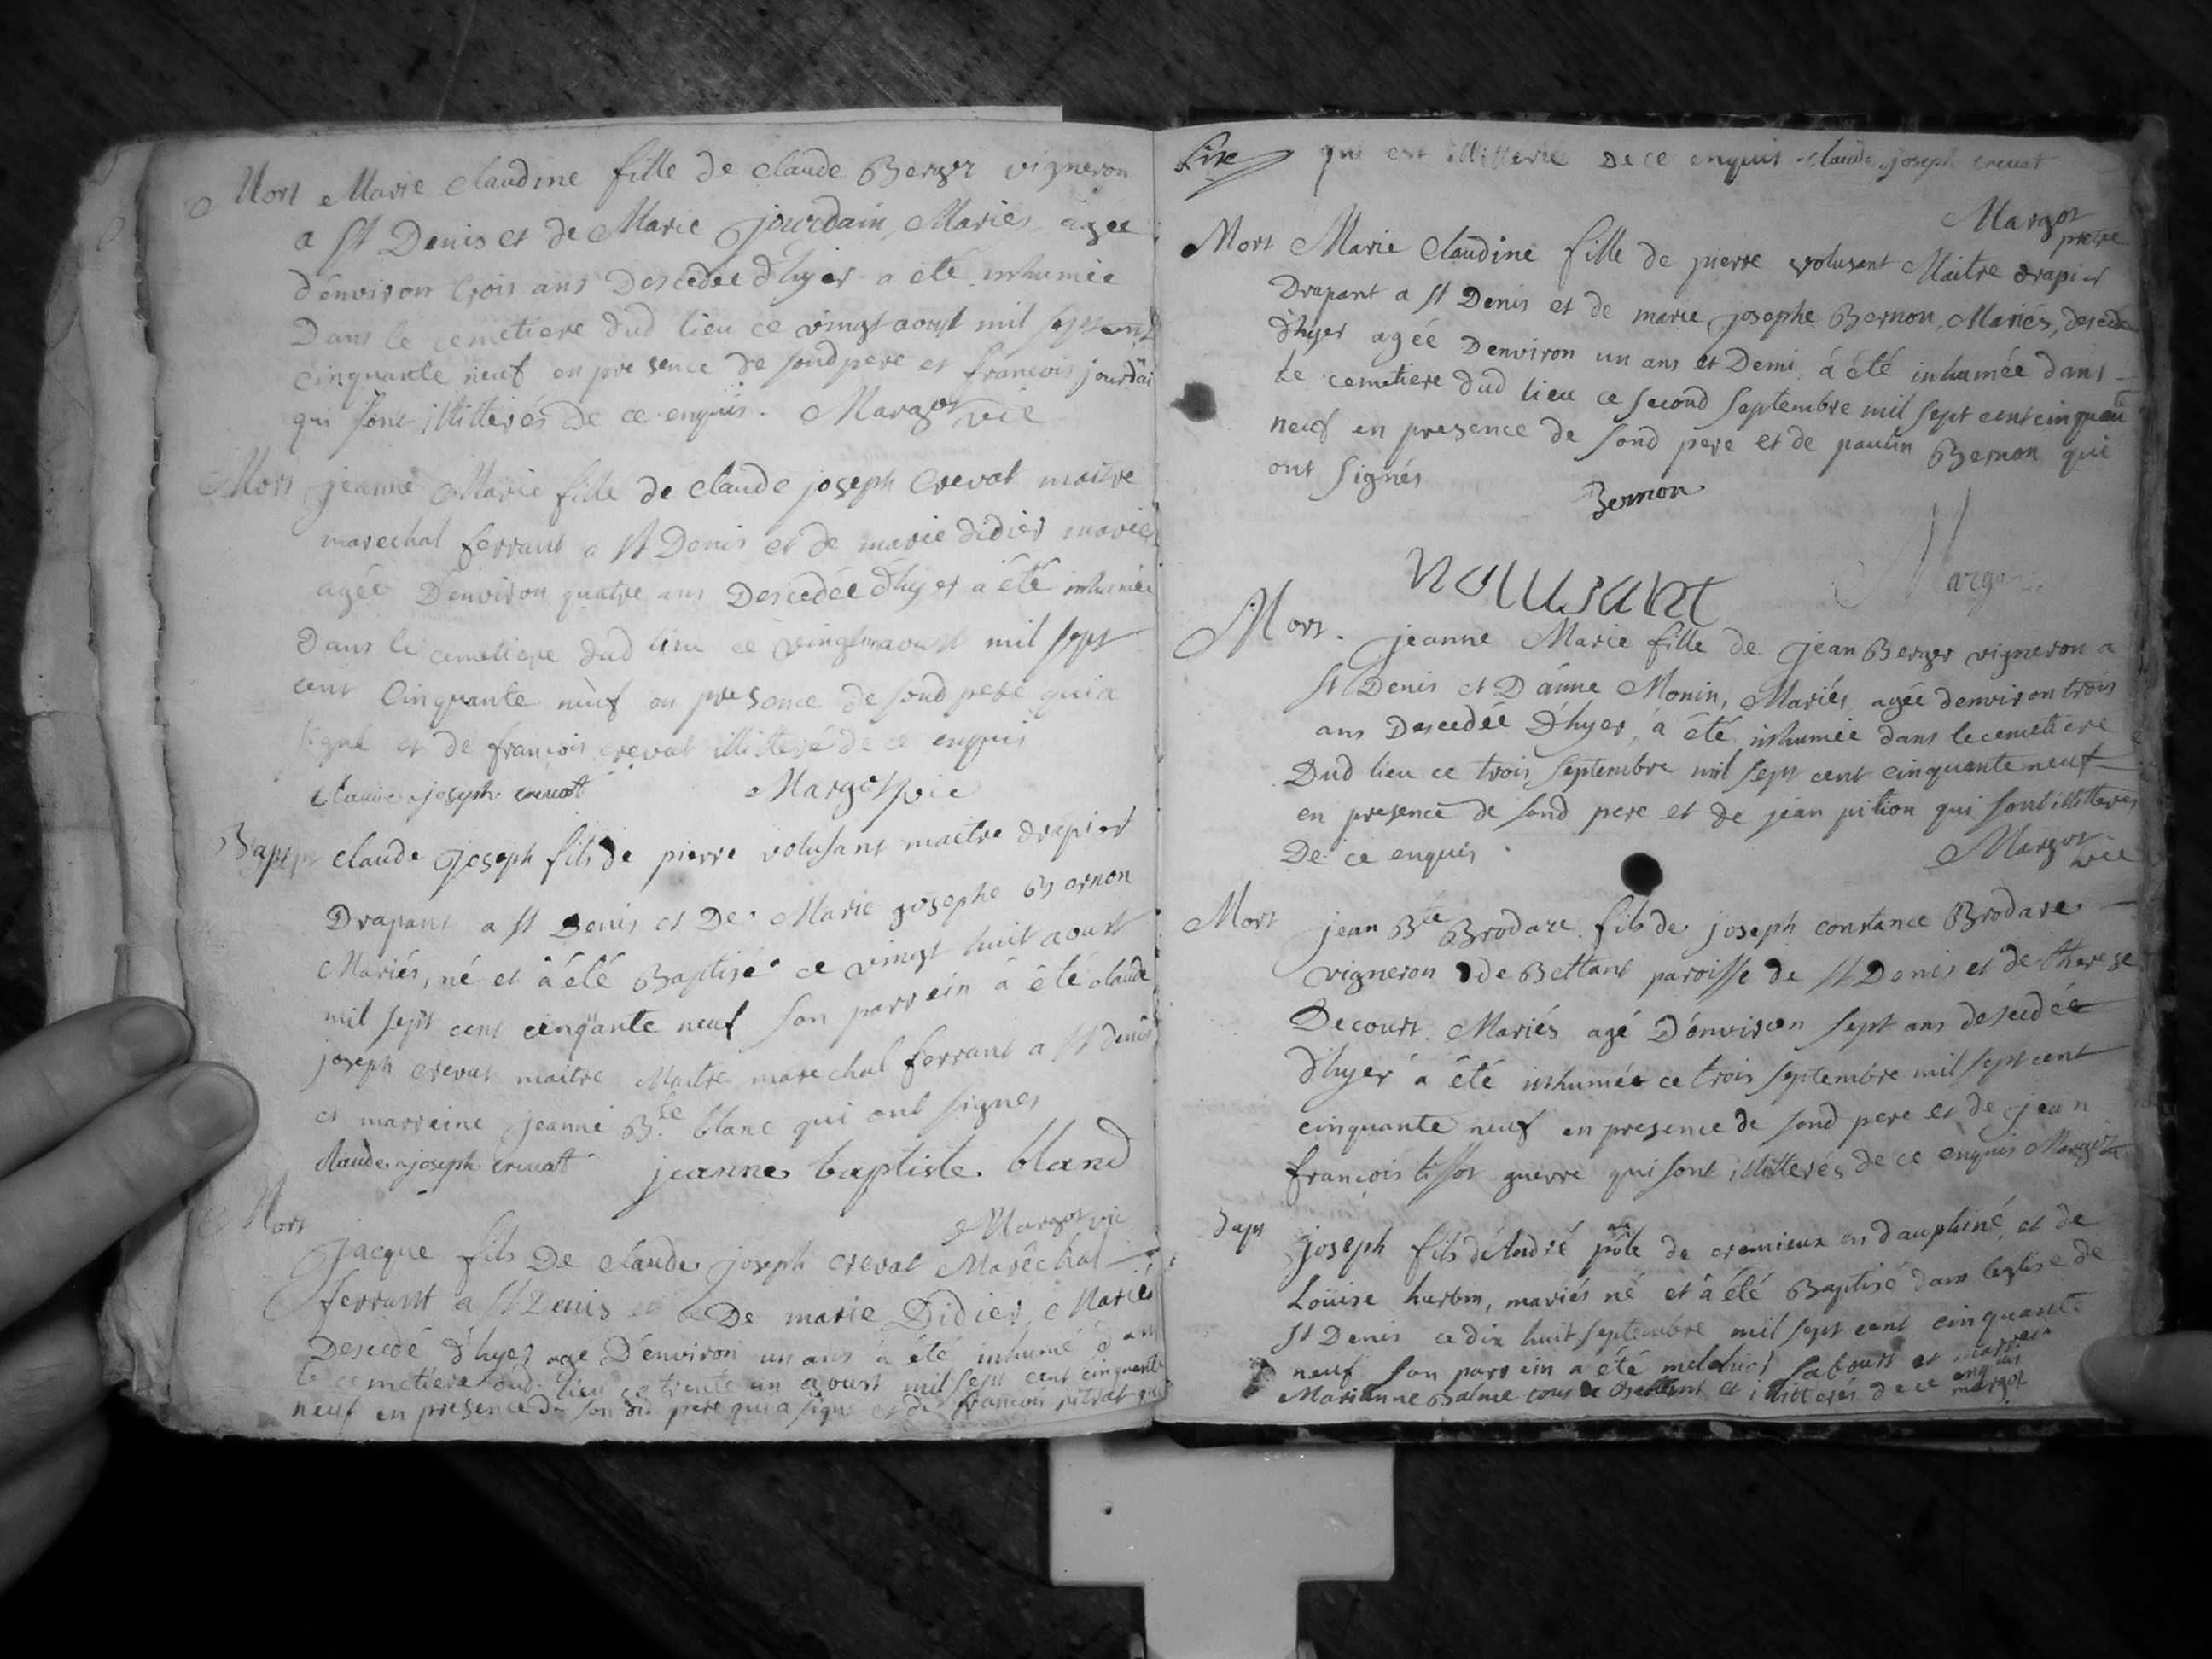 Mort Marie Claudine fille de claude Berger vigneron
a St Denis et de Marie Jourdain, Mariés, agée
d'environ trois ans Descedée d'hyer a été inhumée
Dans le cemetiere dud lieu ce vingt aoust mil sept cent
cinquante neuf en presence de sond pere et francois jourdain
qui sont illitterés de ce enquis. Margot vic
Mort jeanne Marie fille de claude joseph Crevat maitre
marechal ferrant a St Denis et de marie didier mariés
agée D'environ quatre ans Descedée d'hyer a été inhumée
Dans le cemetiere dud lieu ce aoust mil sept
cent Cinquante neuf en presence de sond pere qui a
signé et de francois crevat illiteré de ce enquis
claude joseph crevat Margot vic
Bapt claude Joseph fils de pierre volusant maitre drapier
Drapant a St Denis et De Marie Josephe Bernon
Mariés, né et à été Baptisé ce vingt huit aoust
mil sept cent cinqante neuf son parrein à été claude
joseph crevat maitre Maitre marechal ferrant a St denis
et marreine jeanne Bte blanc qui ont signes
claude joseph crevat jeanne baptiste bland
Margot vic
Mort
Jacque fils De claude joseph crevat Marêchal
ferrant a St Denis et De marie Didier, Mariés
Descedé d'hyer agé D'environ un ans à été inhumé dans
le cemetiere dud lieu ce trente un aoust mil sept cent cinquante
neuf en presence de son dit pere qui a signé et de francois pitrat qui
qui est illitteré De ce enquis claude joseph crevat
Margot
pretre
Mort Marie Claudine fille de pierre volusant Maitre drapier
Drapant a St Denis et de marie josephe Bernon, Mariés, descedée
d'hyer agée Denviron un ans et Demi à été inhumée dans
le cemetiere dud lieu ce second septembre mil sept cent cinquante
neuf en presence de sond pere et de paulin Bernon qui
ont signés
Bernon
volusant Margot
Mort. jeanne Marie fille de jean Berger vigneron a
St Denis et D'anne Monin, Mariés, agée denviron trois
ans Descedée D'hyer, à été inhumée dans le cemetiere
Dud lieu ce trois septembre mil sept cent cinquante neuf
en presence de sond pere et de jean pition qui sont illitteres
De ce enquis Margot
vic
Mort jean Bte Brodare fils de joseph constance Brodare
vigneron de Bettant paroisse de St Denis et de therese
Decourt Mariés agé D'environ sept ans descedée
d'hyer à été inhumée ce trois septembre mil sept cent
cinquante neuf en presence de sond pere et de jean
francois tissot guerre qui sont illitterés de ce enquis Margot
bapt joseph fils d'André pôle de cremieux en dauphiné, et de
Loüise hurbin, mariés né et à été Baptisé dans leglise de
St Denis ce dix huit septembre mil sept cent cinquante
neuf son parrein a été melchior sabourt et marrein
Marianne Balme tous de Bettant et illitterés de ce enquis
margot